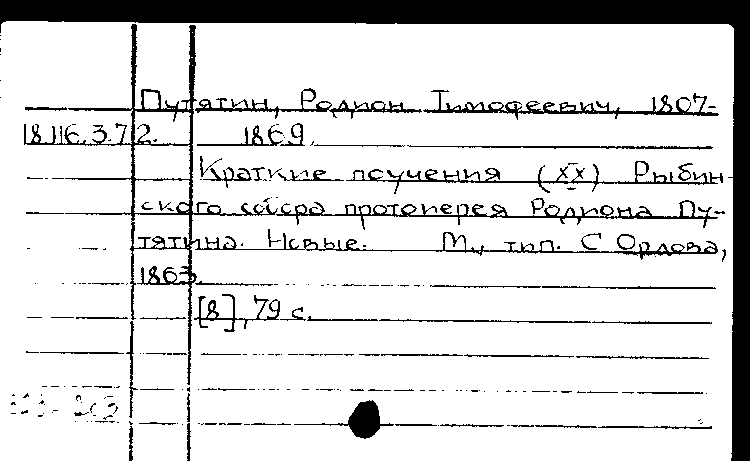 Путятин, Родион Тимофеевич, 1807-
18.116.3.72. 1869.
Краткие поучения (XX) Рыбин-
ского собора протоиерея Родиона Пу-
тятина. Новые. М., тип. С Орлова,
1863.
[8], 79 с.